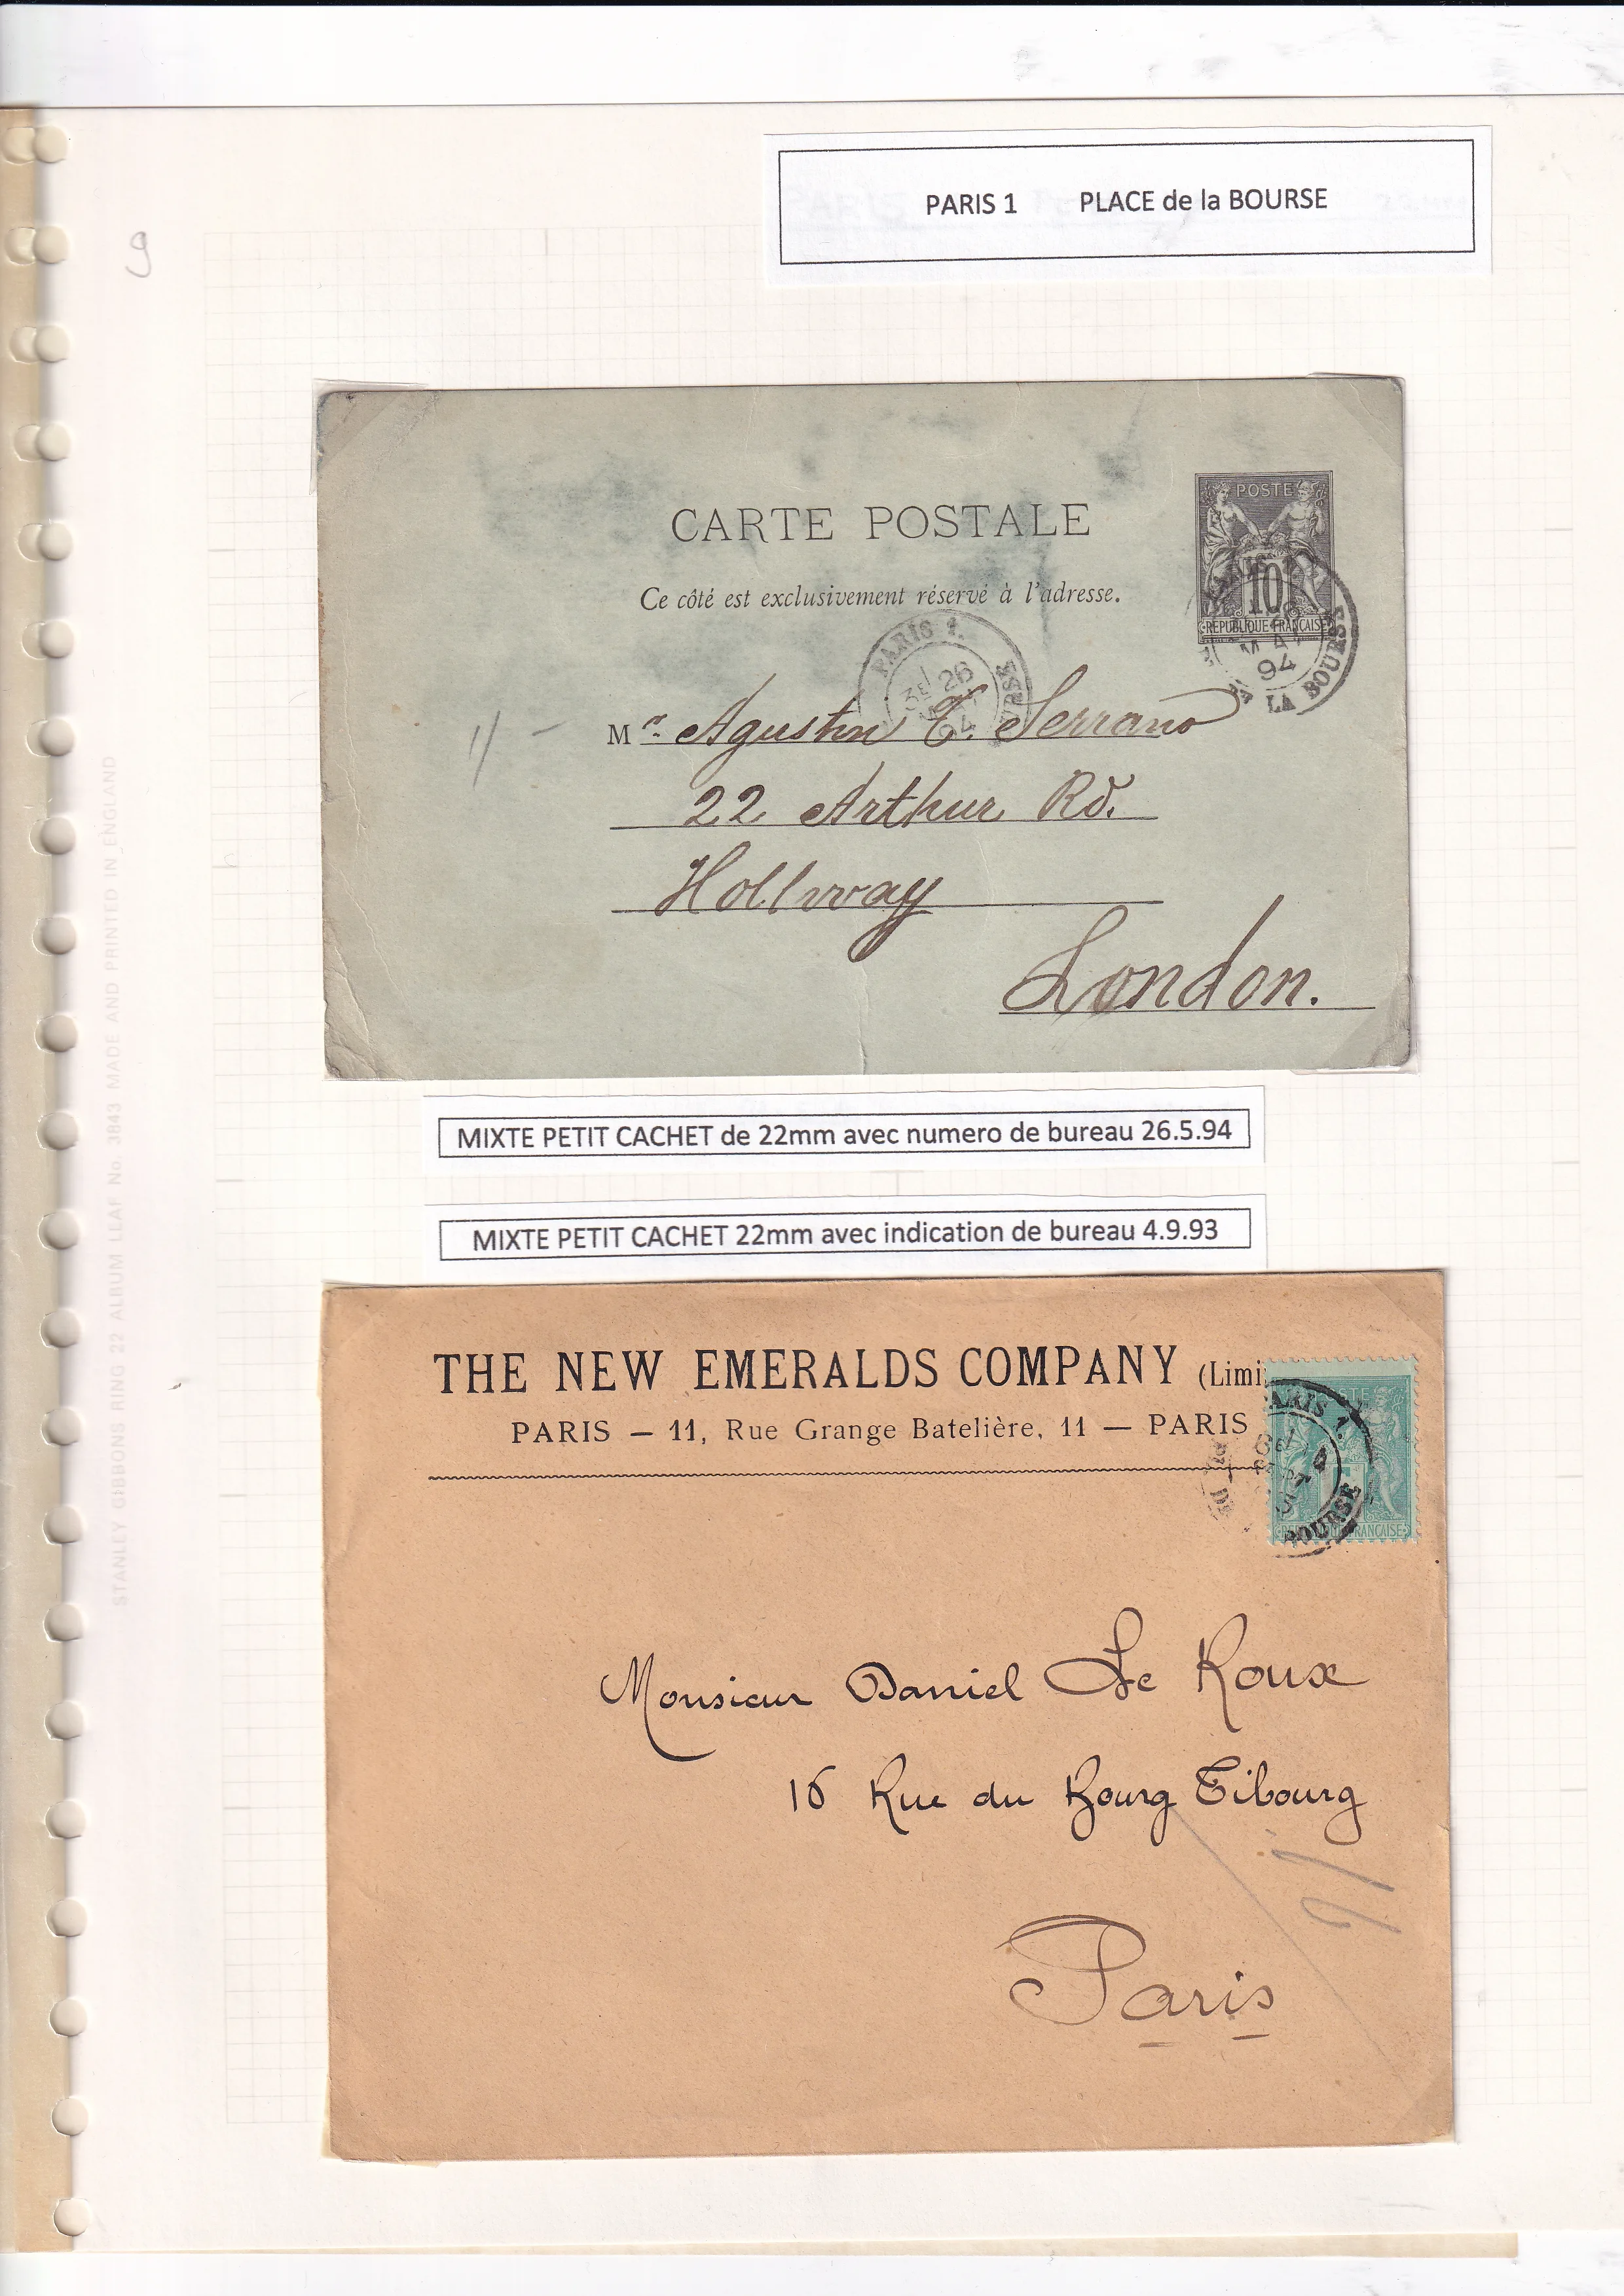 PARIS 1 PLACE de la BOURSE
9
CARTE POSTALE
Ce côté est exclusivement réservé à l'adresse.
POSTE
10
REPUBLIQUE FRANÇAISE
MAI
94
LA BOURSE
PARIS 1.
3E 26
94
Mr. Agustin T. Serrano
22 Arthur Rd.
Hollway
London.
MIXTE PETIT CACHET de 22mm avec numero de bureau 26.5.94
MIXTE PETIT CACHET 22mm avec indication de bureau 4.9.93
THE NEW EMERALDS COMPANY (Limi
PARIS — 11, Rue Grange Batelière, 11 — PARIS
ARIS 1.
4
BOURSE
FRANÇAISE
Monsieur Daniel Le Roux
16 Rue du Bourg Tibourg
Paris
STANLEY GIBBONS RING 22 ALBUM LEAF No. 3843 MADE AND PRINTED IN ENGLAND